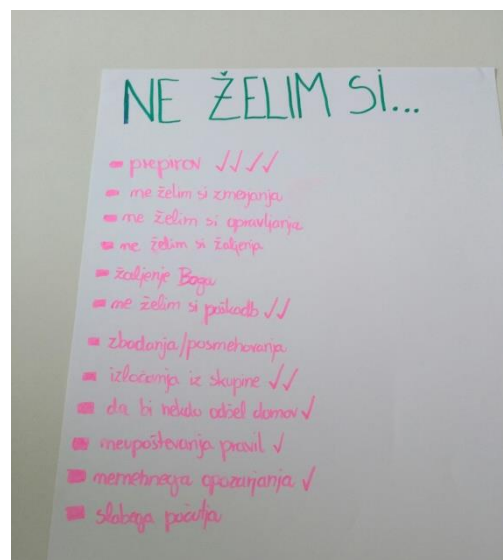 NE ŽELIM SI...
- prepirov ✓✓✓✓
- ne želim si zmerjanja
- ne želim si opravljanja
- ne želim si žaljenja
- žaljenje Boga
- ne želim si poškodb ✓✓
- zbadanja/posmehovanja
- izločanja iz skupine ✓✓
- da bi nekdo odšel domov ✓
- neupoštevanja pravil ✓
- nenehnega opozarjanja ✓
- slabega počutja